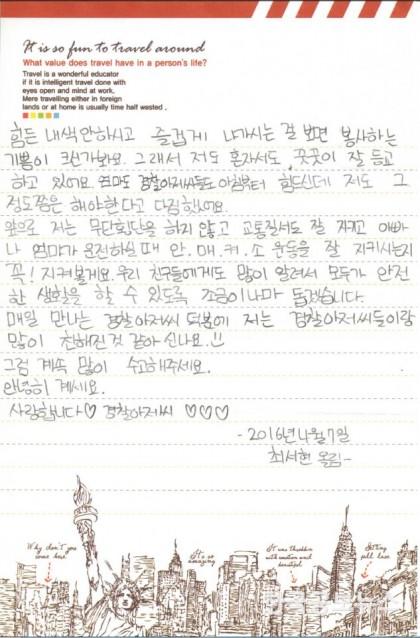 It is so fun to travel around
What value does travel have in a person's life?
Travel is a wonderful educator
if it is intelligent travel done with
eyes open and mind at work.
Mere travelling either in foreign
lands or at home is usually time half wested .
힘든 내색 안하시고 즐겁게 나가시는 걸 보면 봉사하는
기쁨이 크신가봐요. 그래서 저도 혼자서도 꿋꿋이 잘 등교
하고 있어요. 엄마도 경찰아저씨들도 아침부터 힘드신데 저도 그
정도쯤은 해야한다고 다짐했어요.
앞으로 저는 무단횡단을 하지 않고 교통질서도 잘 지키고 아빠
나 엄마가 운전하실 때 안.매.켜.소 운동을 잘 지키시는지
꼭! 지켜볼게요. 우리 친구들에게도 많이 알려서 모두가 안전
한 생활을 할 수 있도록 조금이나마 돕겠습니다.
매일 만나는 경찰아저씨 덕분에 저는 경찰아저씨들이랑
많이 친해진것 같아 신나요.
그럼 계속 많이 수고해주세요.
안녕히 계세요.
사랑합니다♡ 경찰아저씨 ♡♡♡
- 2016년 4월 7일
최서현 올림 -
Why don't you come here?
It's so amazing
It was